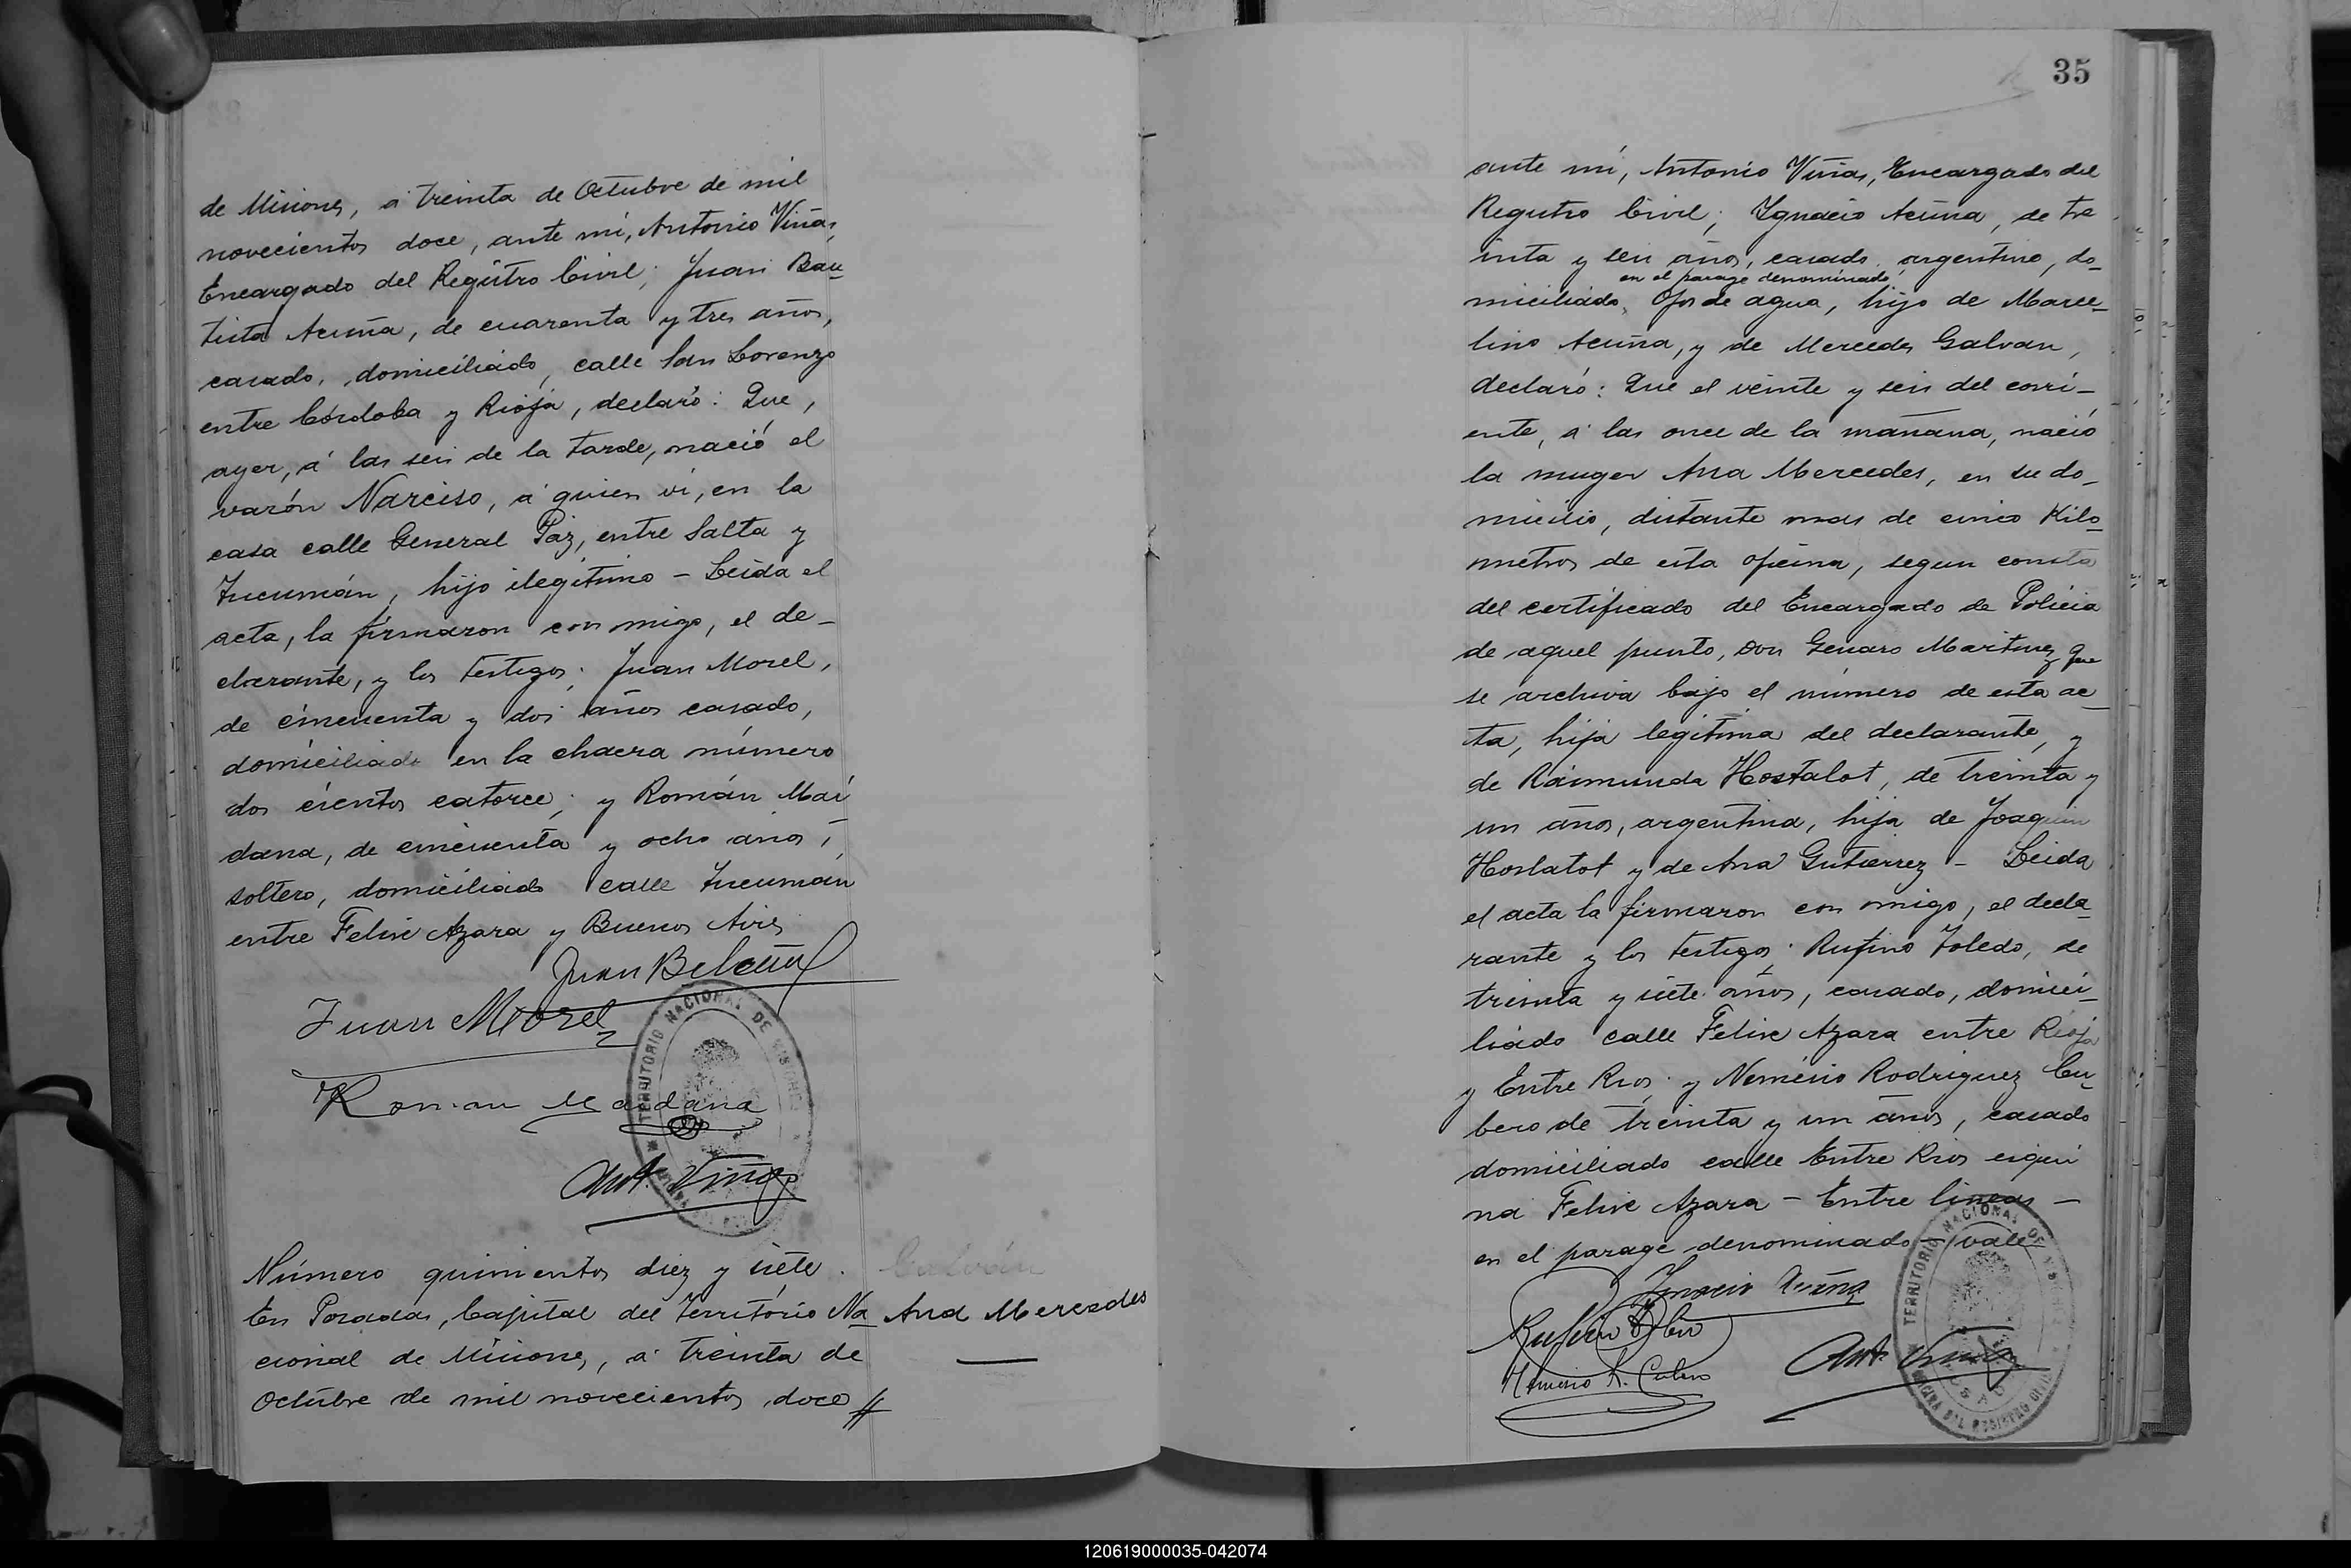 de Misiones, á treinta de Octubre de mil
novecientos doce, ante mí, Antonio Viñas,
Encargado del Registro Civil; Juan Bau
tista Acuña, de cuarenta y tres años,
casado, domiciliado, calle San Lorenzo
entre Córdoba y Rioja, declaró: Que,
ayer, á las seis de la tarde, nació el
varón Narciso, á quien vi, en la
casa calle General Paz, entre Salta y
Tucumán, hijo ilegítimo - Leida el
acta, la firmaron con migo, el de-
clarante, y los testigos; Juan Morel,
de cincuenta y dos años casado,
domiciliado en la chacra número
dos cientos catorce; y Román Mai
dana, de cincuenta y ocho años,
soltero, domiciliado calle Tucumán
entre Felix Azara y Buenos Aires
Juan B
Juan Morel
Roman Maidana
Ant. Viñas
TERRITORIO NACIONAL DE MISIONES
Número quinientos diez y siete.
En Posadas, Capital del Territorio Na
cional de Misiones, á treinta de
Octubre de mil novecientos doce //
Ana Mercedes
35
ante mí, Antonio Viñas, Encargado del
Registro Civil; Ygnacio Acuña, de tre
inta y seis años, casado, argentino, do-
en el parage denominado
miciliado, Ojos de agua, hijo de Marce-
lino Acuña, y de Mercedes Galvan,
declaró: Que el veinte y seis del corri-
ente, á las once de la mañana, nació
la muger Ana Mercedes, en su do-
micilio, distante mas de cinco Kilo-
metros de esta oficina, segun consta
del certificado del Encargado de Policia
de aquel punto, Don Genaro Martinez que
se archiva bajo el número de esta ac-
ta, hija legítima del declarante, y
de Raimunda Hostalot, de treinta y
un años, argentina, hija de Joaquin
Hoslatot y de Ana Gutierrez - Leida
el acta la firmaron con migo, el decla-
rante y los testigos: Rufino Toledo, de
treinta y siete años, casado, domici-
liado calle Felix Azara entre Rioja
y Entre Rios; y Nemesio Rodriguez Cu-
bero de treinta y un años, casado
domiciliado calle Entre Rios esqui
na Felix Azara - Entre lineas -
en el parage denominado - vale
Ignacio Acuña
Nemesio R. Cubero
Ant. Viñas
TERRITORIO NACIONAL DE MISIONES
OFICINA DEL REGISTRO CIVIL
POSADAS
120619000035-042074